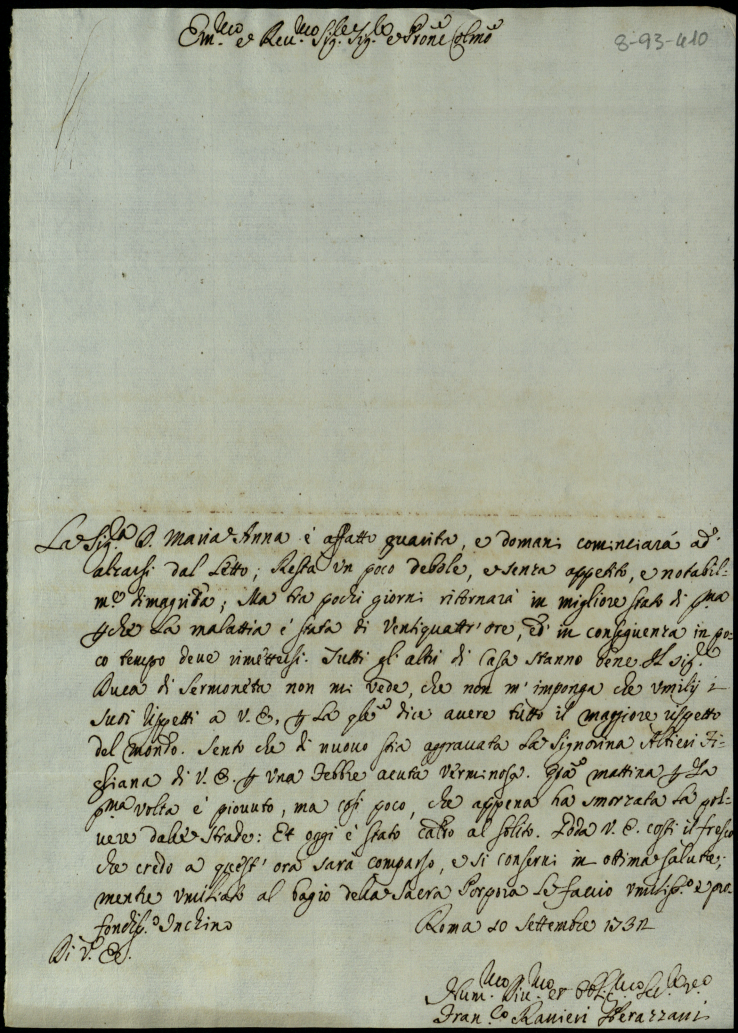 Em.mo e Reu.mo Sig.re Sig.re e Prone Colmo
8-93-410
La Sig.ra D. Maria Anna è affatto guarita, e domani cominciarà ad'
alzarsi dal Letto; Resta un poco debole, e senza appetito, e notabil-
m.te dimagrita; Ma tra pochi giorni ritornarà in migliore stato di p.ma
pche La malattia è stata di Ventiquattr'ore, ed' in conseguenza in po-
co tempo deve rimettersi. Tutti gli altri di Casa stanno bene Il Sig.r
Duca di Sermoneta non mi vede, che non m'imponga che umilij i
suoi rispetti a V. E., p La dice avere tutto il maggiore rispetto
del mondo. Sento che di nuovo stia aggravata La Signorina Altieri
di V. E. p una Febbre acuta Verminosa. mattina p La
p.ma volta è piovuto, ma così poco, che appena ha smorzata La pol-
vere dalle Strade: Et oggi è stato caldo al solito. Goda V. E. costì il fresco
che credo a quest'ora sarà comparso, e si conservi in ottima salute;
mentre umiliato al bagio della Sacra Porpora Le faccio umiliss.o e pro-
fondiss.o Inchino
Roma 10 Settembre 1732
Di V. E.
Hum.mo Div.mo et Obl.mo
Fran.co Ranieri